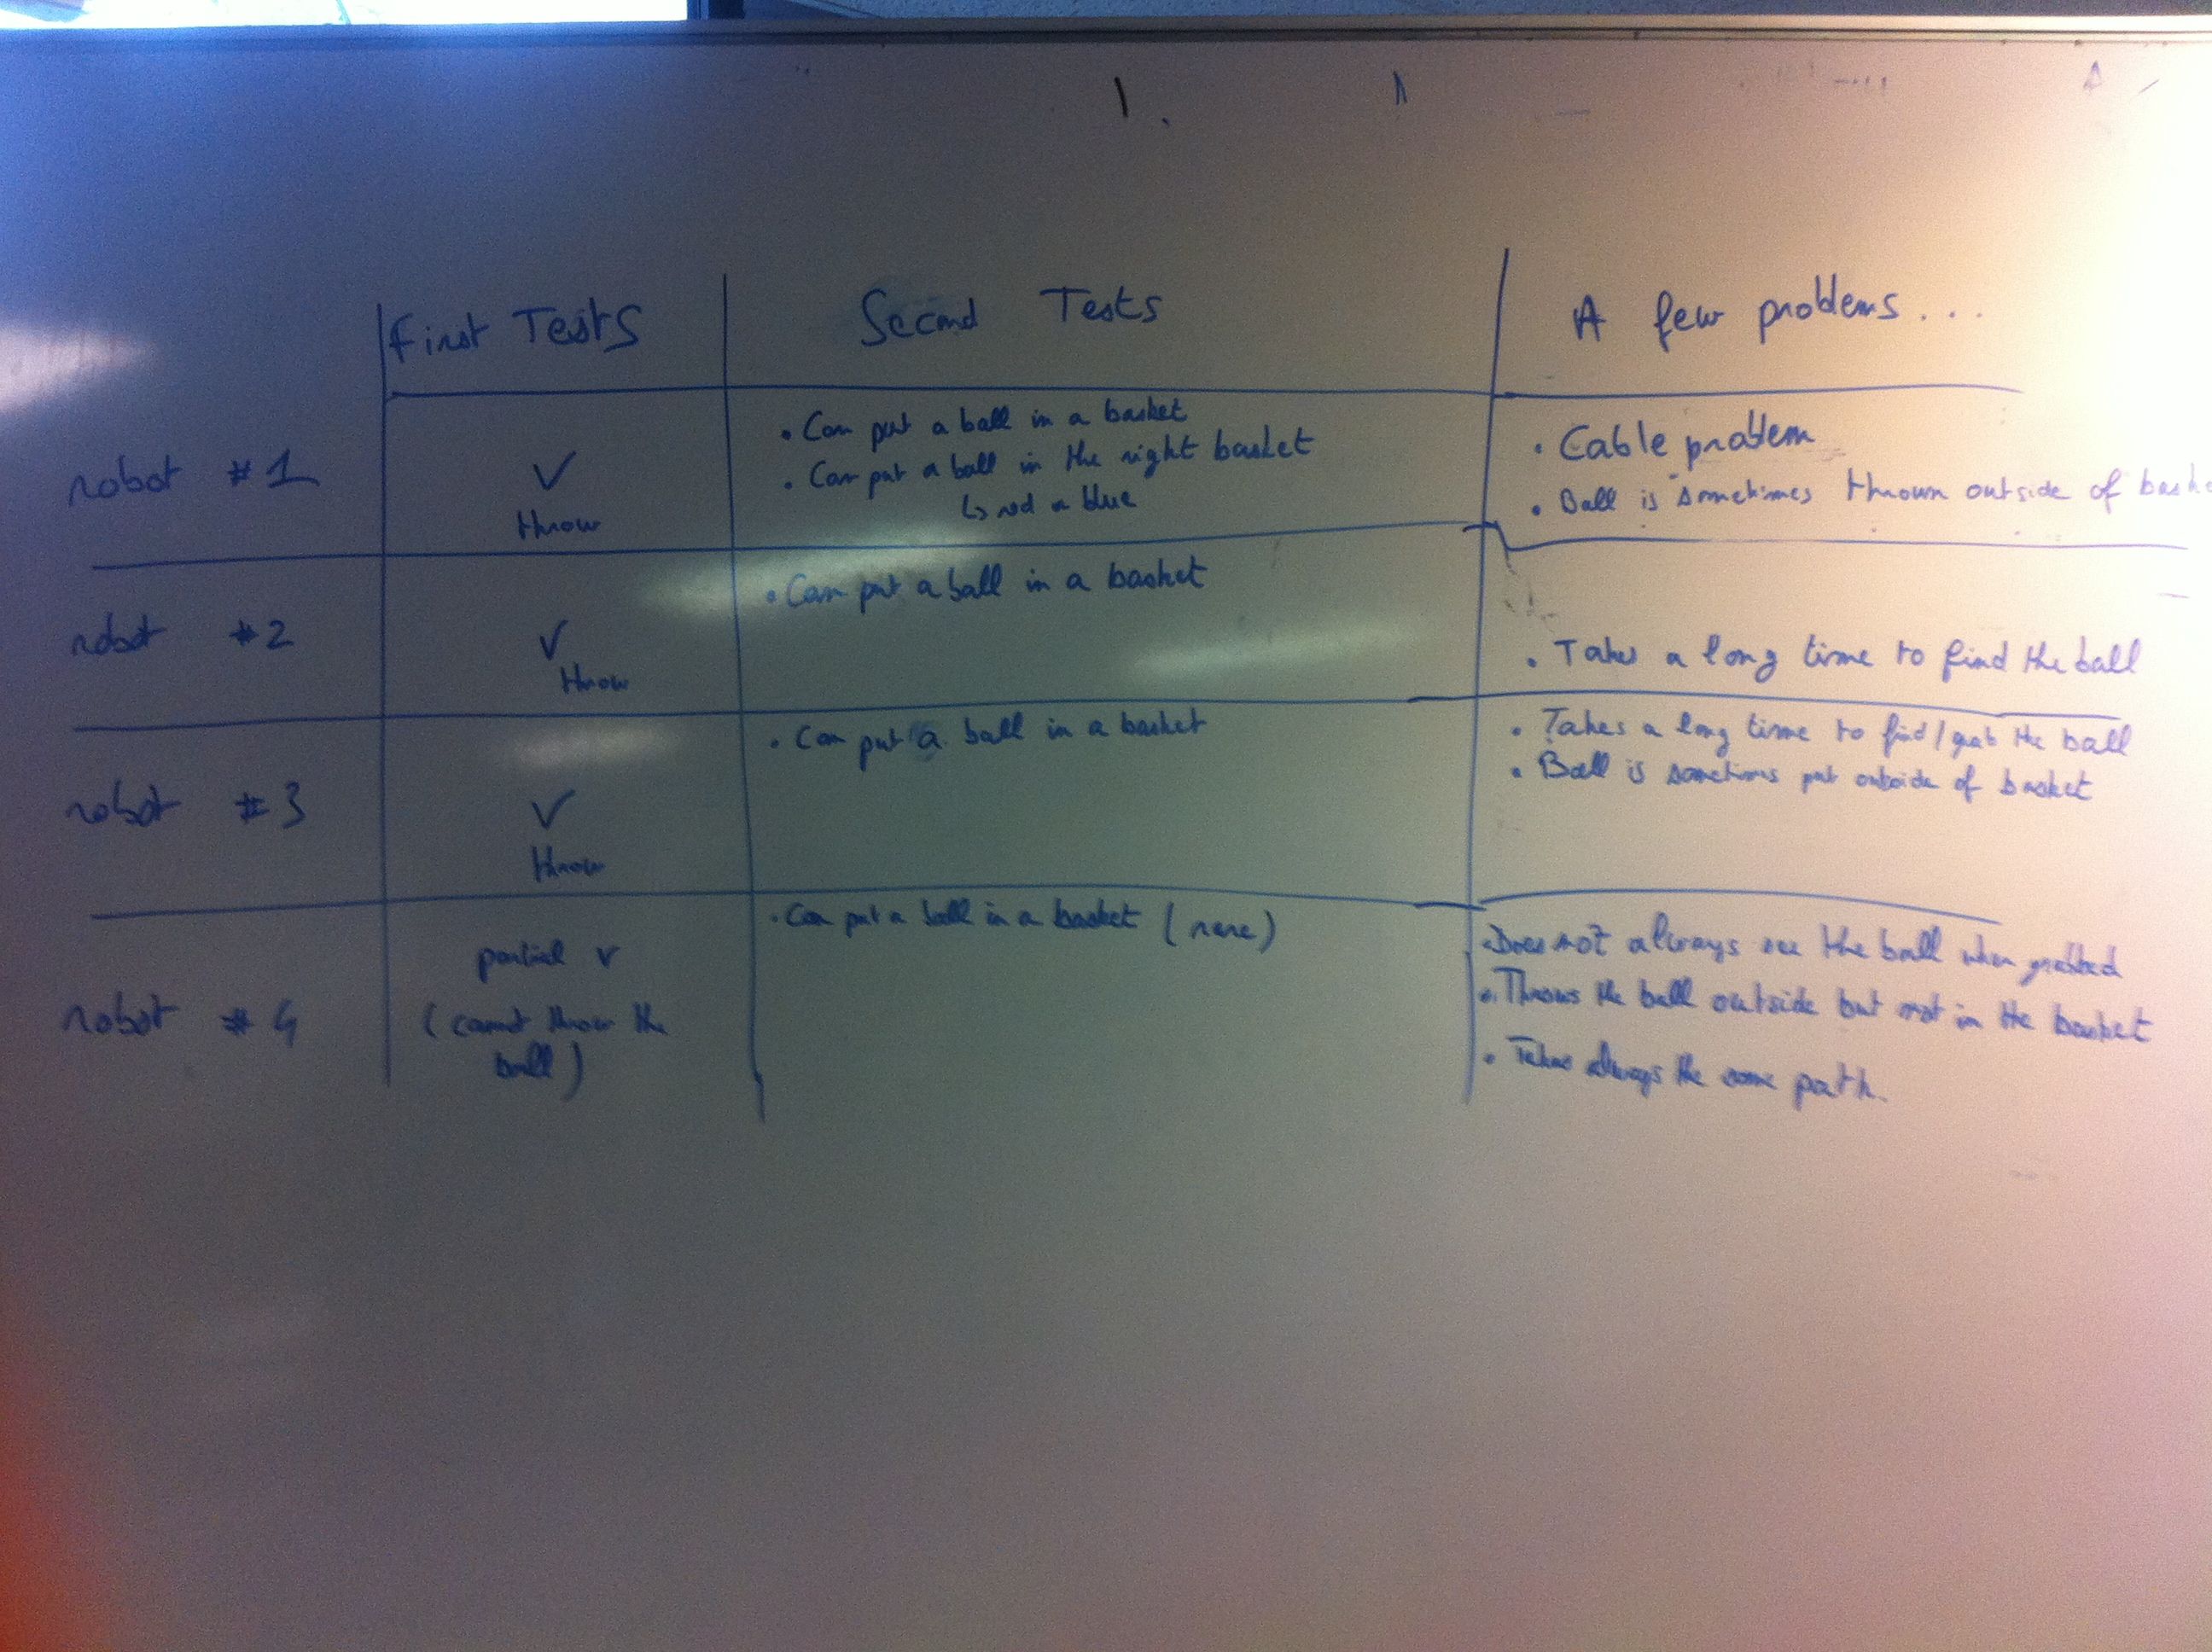 First Tests
Second Tests
A few problems...
robot #1
✓
throw
• Can put a ball in a basket
• Can put a ball in the right basket
↳ red or blue
• Cable problem
• Ball is sometimes thrown outside of
robot #2
✓
throw
• Can put a ball in a basket
• Takes a long time to find the ball
robot #3
✓
throw
• Can put a ball in a basket
• Takes a long time to find/grab the ball
• Ball is sometimes put outside of basket
robot #4
partial ✓
(cannot throw the
ball)
• Can put a ball in a basket (rare)
• Does not always see the ball when grabbed
• Throws the ball outside but not in the basket
• Takes always the same path.